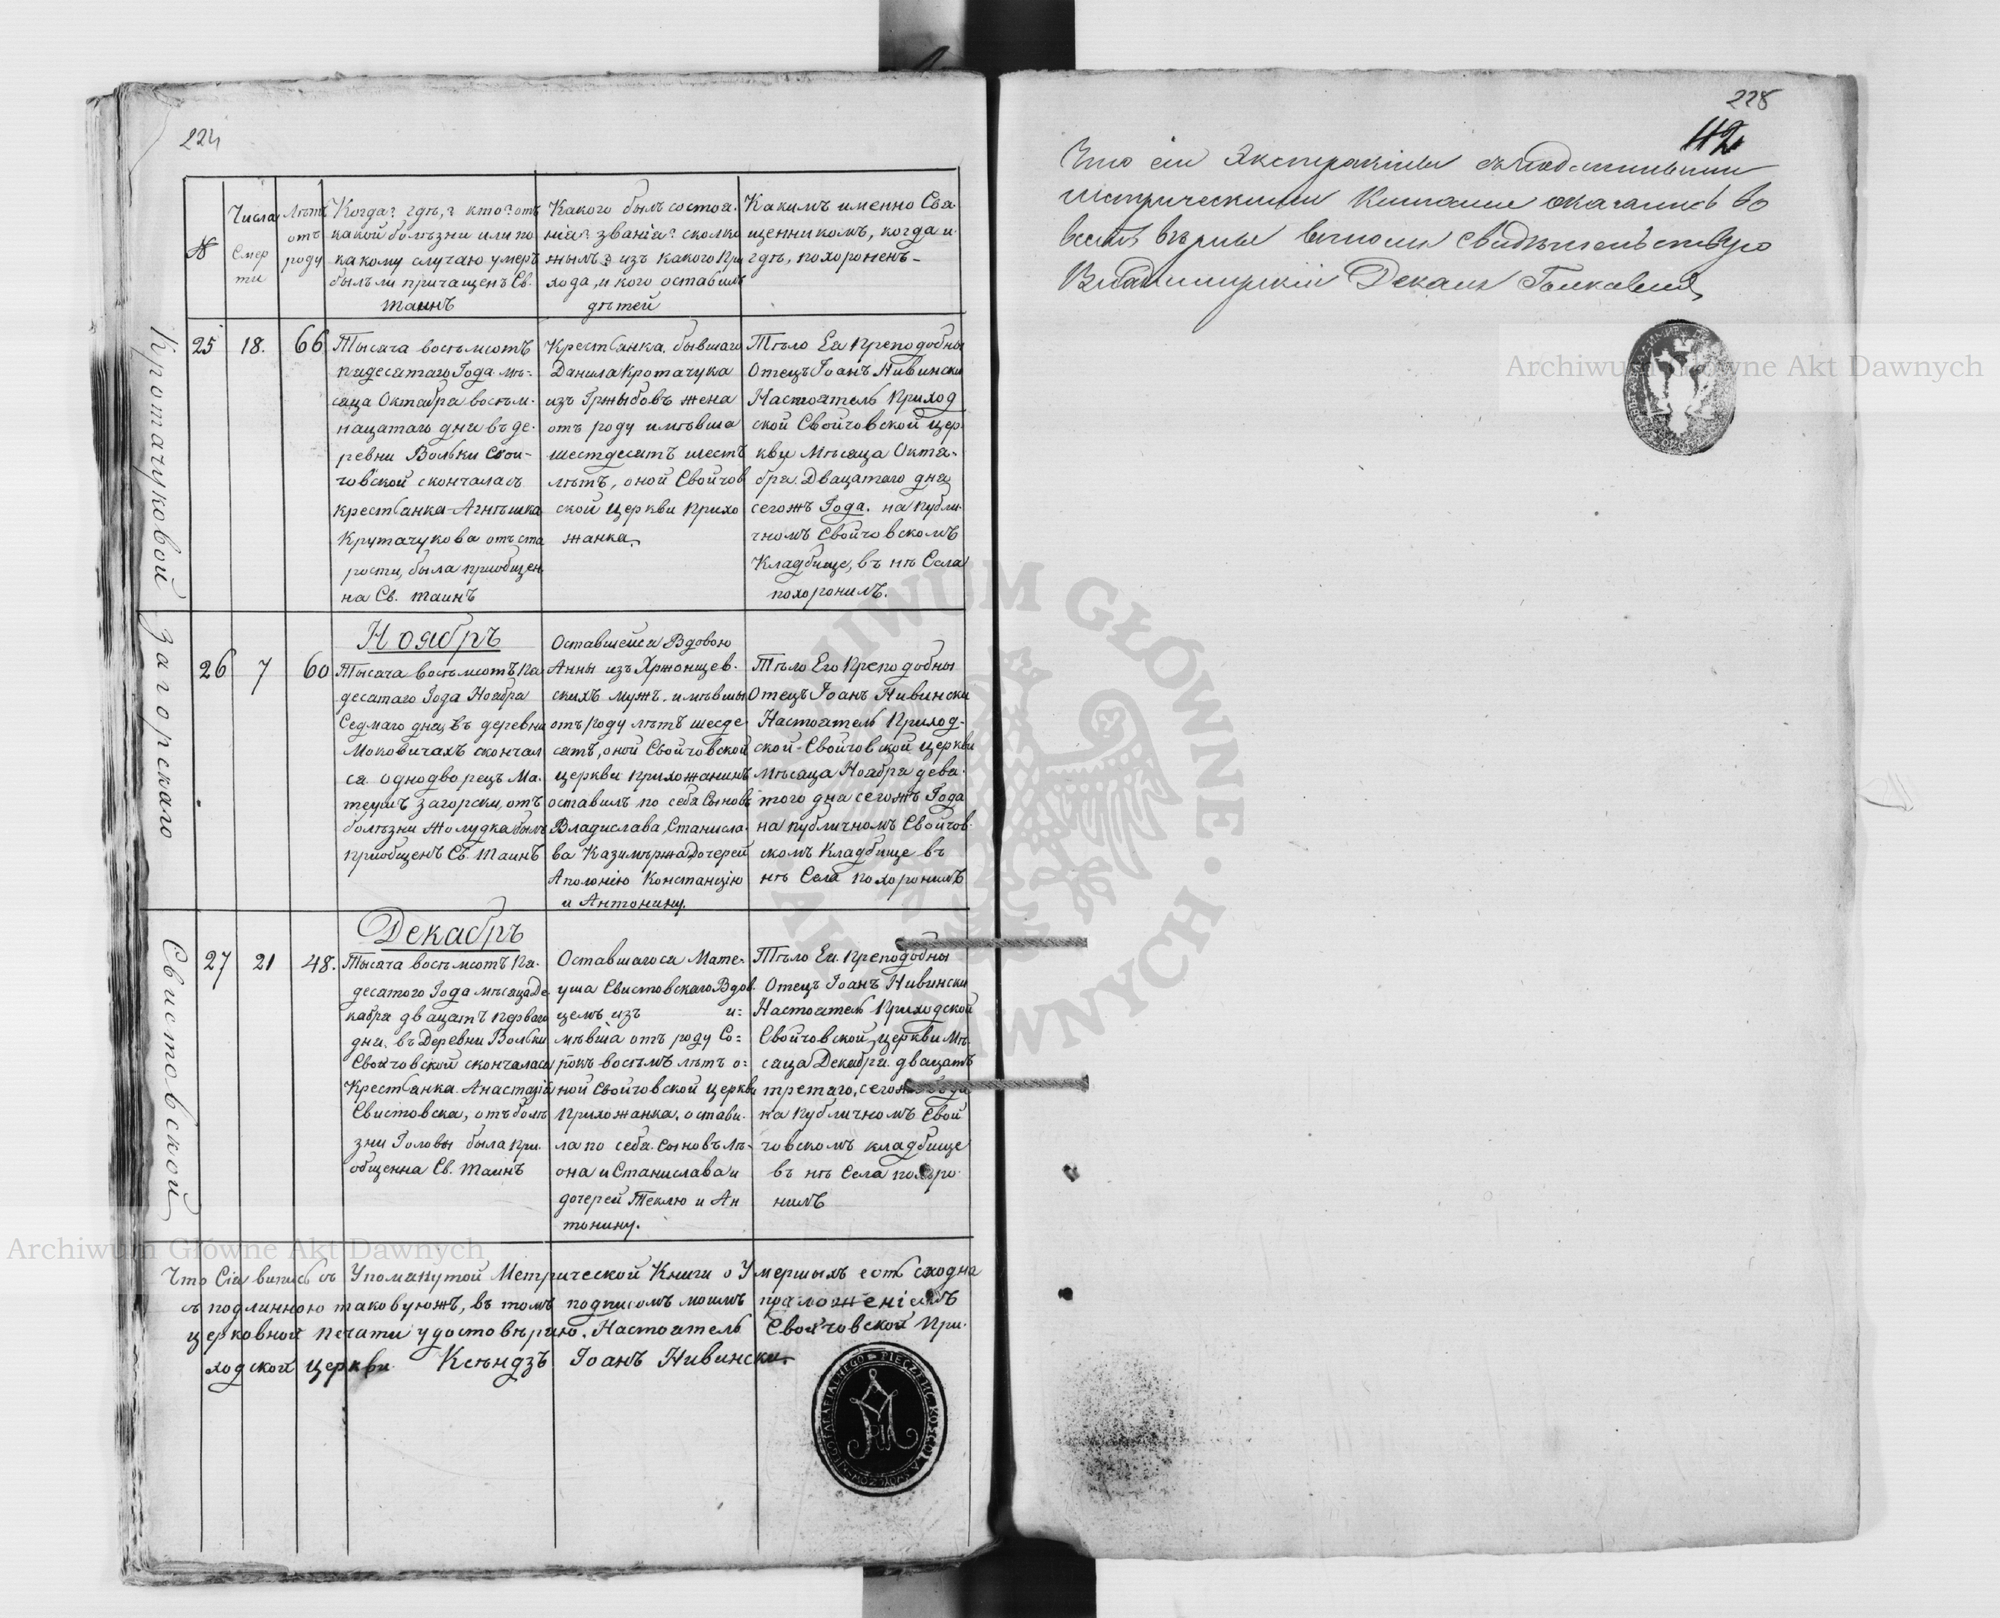 224
№
Числа
Смер
ти
Лѣтъ
отъ
роду
Когда? гдѣ,? кто? отъ
какой болѣзни или по
какому случаю умеръ
былъ ли причащенъ Св.
таинъ
Какого былъ состоя-
нія? званія? сколько
жылъ? изъ какого При
хода, и кого оставилъ
дѣтей
Какимъ именно Свя-
щенникомъ, когда и
гдѣ, похороненъ-
Кротачуковой
25
18.
66
Тысяча восемьсотъ
пядесятаго Года мѣ-
сяца Октабря восем-
нацатаго дня въ де-
ревни Вольки Свой-
човской скончалась
крестьянка Агнѣшка
Крутачукова отъ ста
рости, была приобщен
на Св. таинъ
Крестьянка, бывшаго
Данила Кротачука
изъ Гржыбовъ жена
отъ роду имѣвша
шестдесятъ шесть
лѣтъ, оной Свойчов
ской Церкви прихо
жанка.
Тѣло Ея Преподобны
Отецъ Іоанъ Нивински
Настоятель Приход
ской Свойчовской цер
кви Мѣсяца Октя-
бря Двацатаго дня
сегожъ Года. на публи-
чномъ Свойчовскомъ
Кладбище, въ нѣ Села
похоронилъ.
Загорскаго
Ноябръ
26
7
60
Тысяча восемьсотъ Пя
десятаго Года Ноября
Седмаго дня, въ деревни
Моковичахъ скончал
ся однодворецъ Ма-
теушъ Загорски, отъ
болѣзни Жолудка былъ
приобщенъ Св. Таинъ
Оставшейся Вдовою
Анны изъ Хржонщев-
скихъ мужъ, имѣвшы
отъ роду лѣтъ шесде
сятъ, оной Свойчовской
церкви прихожанинъ
оставилъ по себя Сыновъ
Владислава, Станисла-
ва Казимѣржа Дочерей
Аполонію Констанцію
и Антонину.
Тѣло Его Преподобны
Отецъ Іоанъ Нивински
Настоятель Приход-
ской Свойчовской церкви
Мѣсяца Ноября девя-
того дня сегожъ Года
на публичномъ Свойчов-
скомъ Кладбище въ
нѣ Села похоронилъ
Свистовской
Декабръ
27
21
48.
Тысяча восемьсотъ Пя-
десятого Года мѣсяца Де
кабря двацать первого
дня, въ Деревни Вольки
Свойчовской скончалась
Крестьянка Анастазія
Свистовска, отъ болѣ
зни Головы была при-
общенна Св. Таинъ
Оставшагося Мате-
уша Свистовскаго Вдов
цемъ изъ и-
мѣвша отъ роду Со-
рокъ восемъ лѣтъ о-
ной Свойчовской церкви
Прихожанка, остави-
ла по себя Сыновъ Лѣ-
она и Станислава и
дочерей Теклю и Ан
тонину.
Тѣло Ея Преподобны
Отецъ Іоанъ Нивински
Настоятель Приходской
Свойчовской церкви Мѣ-
сяца Декабря двацать
третаго, сегожъ Года
на Публичномъ Свой
човскомъ кладбище
въ нѣ Села похоро-
нилъ
Что Сія випись съ Упомянутой Метрической Книги о Умершыхъ есть сходна
съ подлинною таковуюжъ, въ томъ подписомъ моимъ приложеніемъ
церковной печати удостовѣряю. Настоятель Свойчовской При-
ходской церкви Ксѣндзъ Іоанъ Нивински
228
42
Что сіи Экстракты съ подлинными
метрическими Книгами оказались во
всемъ вѣрны въ томъ свидѣтельствую
Владимирскій Деканъ
Archiwum Główne Akt Dawnych
Archiwum Główne Akt Dawnych
ARCHIWUM GŁÓWNE · AKT DAWNYCH ·